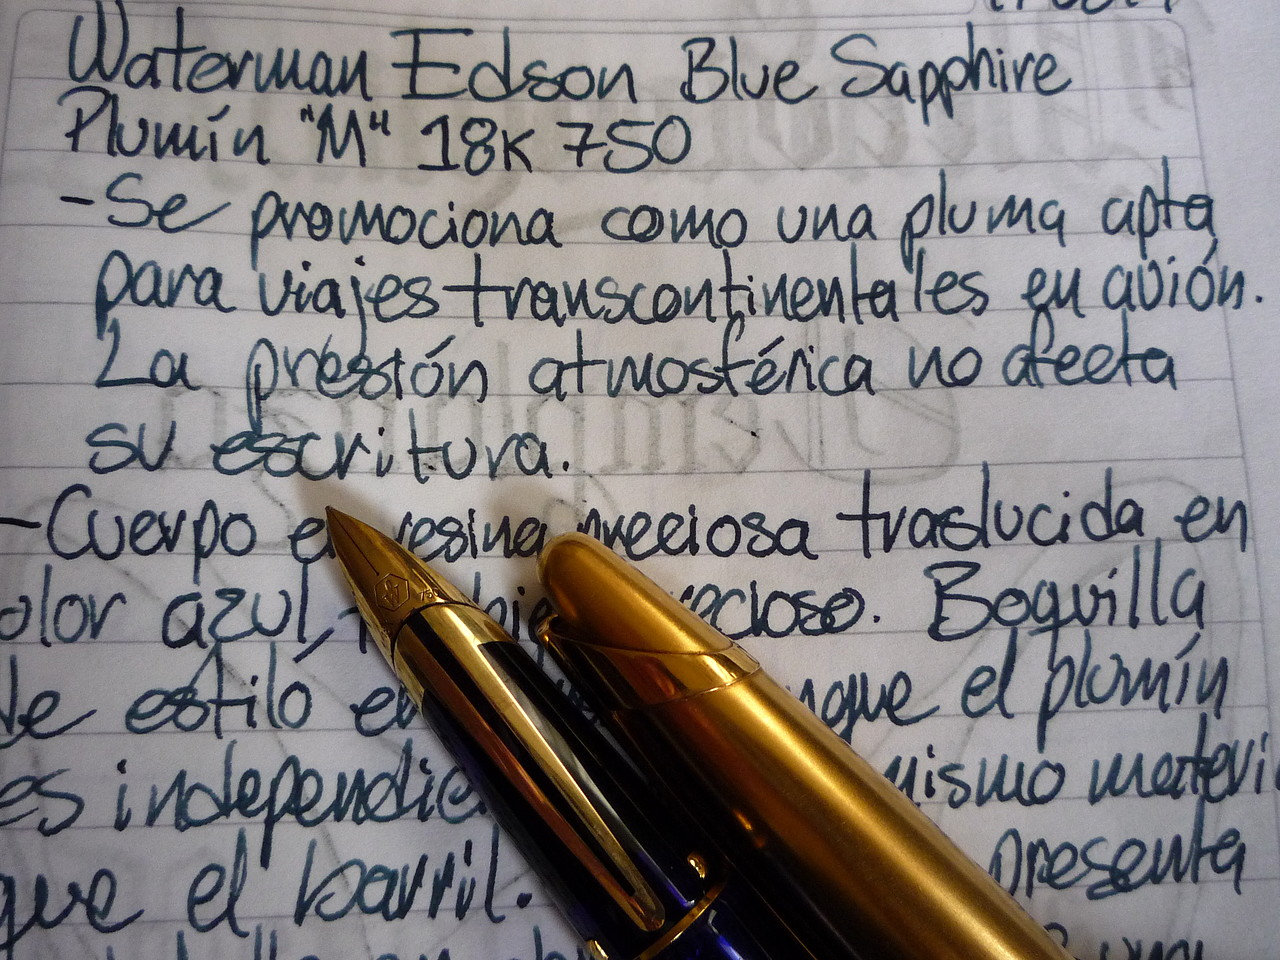 Waterman Edson Blue Sapphire
Plumín "M" 18K 750
-Se promociona como una pluma apta
para viajes transcontinentales en avión.
La presión atmosférica no afecta
su escritura.
-Cuerpo en resina preciosa traslucida en
olor azul,
Boquilla
de estiló
el plumín
es
mismo
que el barril.
presenta